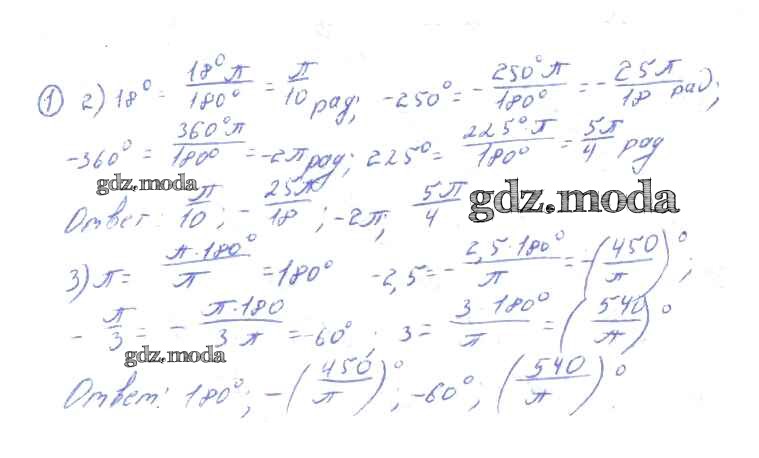 ① 2) 18° = 18°π/180° = π/10 рад; -250° = -250°π/180° = -25π/18 рад;
-360° = 360°π/180° = -2π рад; 225° = 225°·π/180° = 5π/4 рад
gdz.moda
Ответ: π/10; -25π/18; -2π; 5π/4 gdz.moda
3) π = π·180°/π = 180° -2,5 = -2,5·180°/π = -(450/π)°;
-π/3 = -π·180/3π = -60°; 3 = 3·180°/π = (540/π)°
gdz.moda
Ответ: 180°; -(450/π)°; -60°; (540/π)°